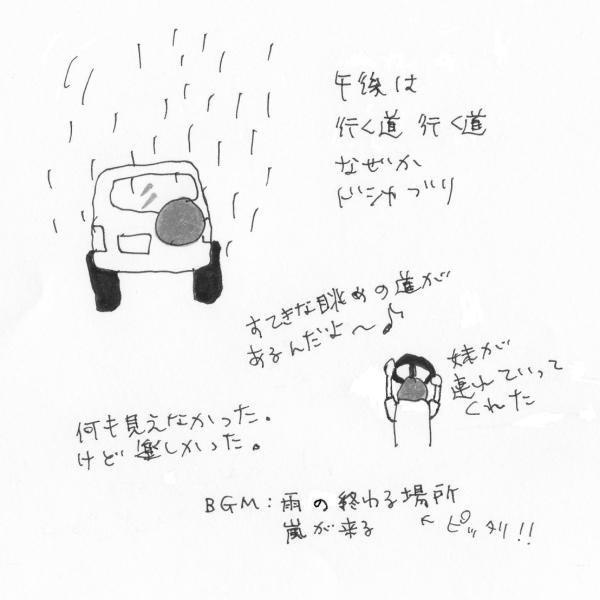 午後は
行く道 行く道
なぜか
ドシャブリ
すてきな眺めの道が
あるんだよ〜♪
妹が
連れていって
くれた
何も見えなかった。
けど楽しかった。
BGM:雨の終わる場所
嵐が来る ↖ピッタリ!!